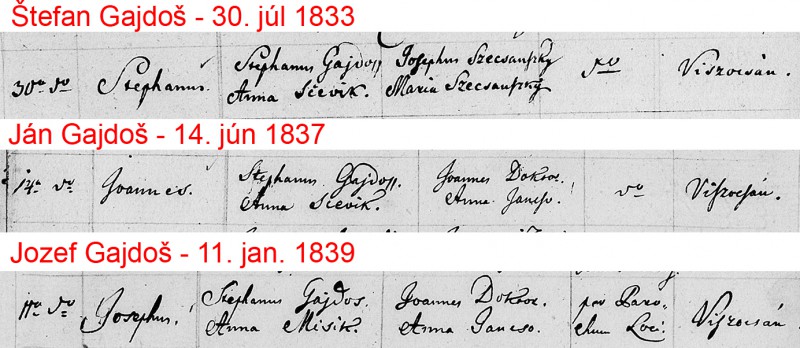 Štefan Gajdoš - 30. júl 1833
30a do Stephanus. Stephanus Gajdoss Josephus Szecsansky do Viszocsán.
Anna Sčevik. Maria Szecsansky
Ján Gajdoš - 14. jún 1837
14a do Joannes. Stephanus Gajdoss. Joannes Doktor. do Viszocsán.
Anna Sčevik. Anna Jancso.
Jozef Gajdoš - 11. jan. 1839
11a do Josephus. Stephanus Gajdos. Joannes Doktor. per Paro-
Anna Misik. Anna Jancso. chum Loci. Viszocsán